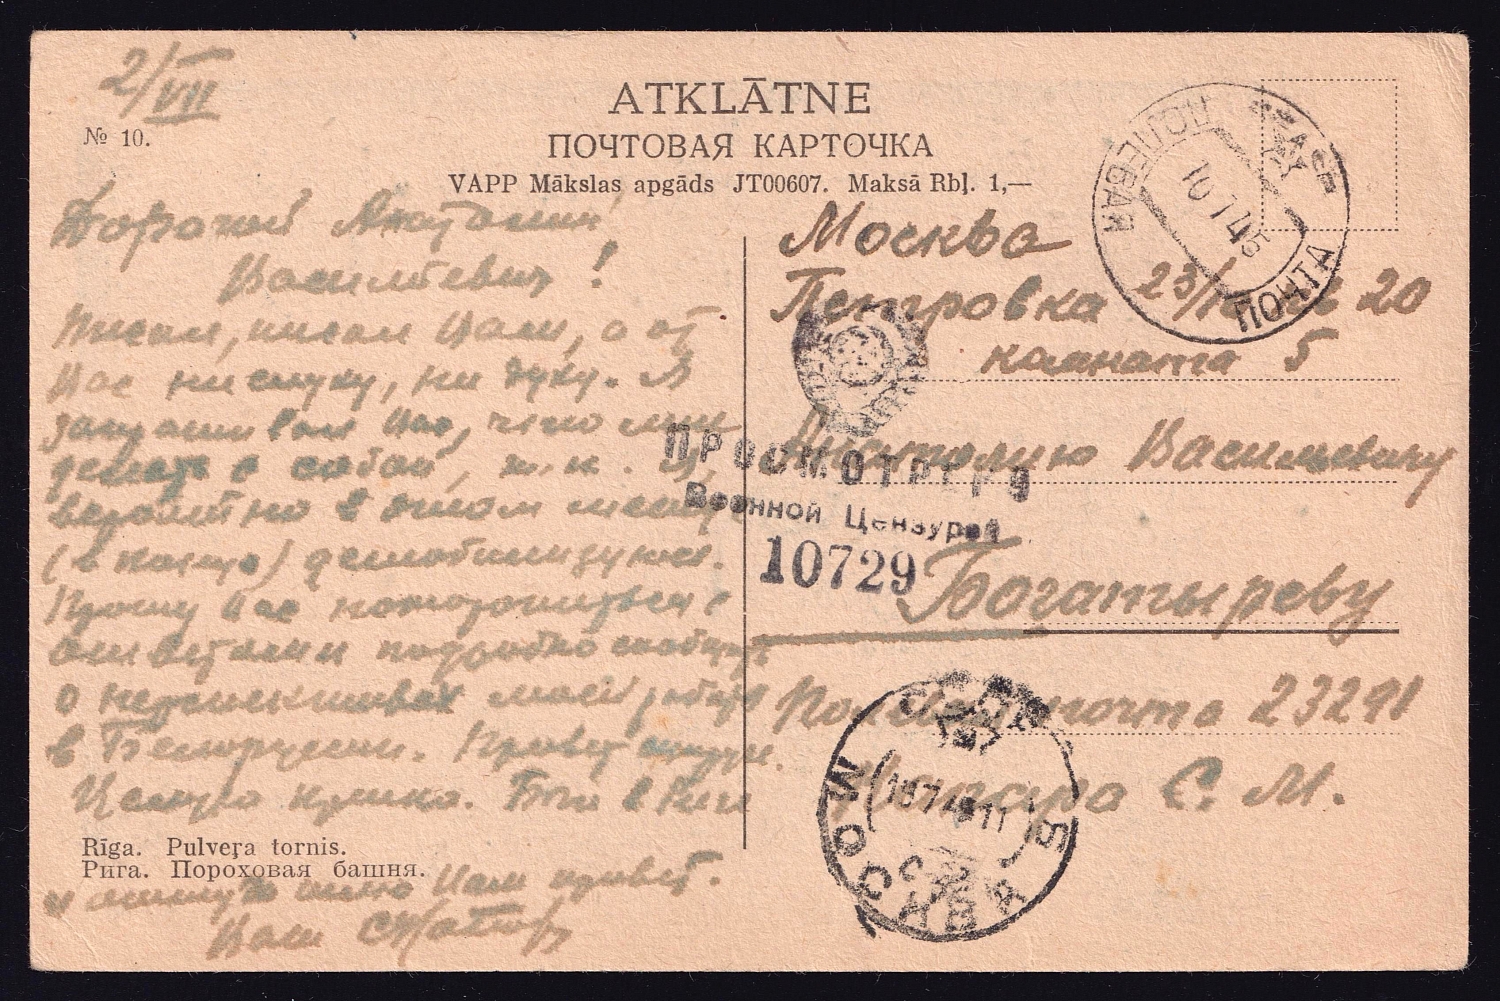 2/VII
№ 10.
ATKLĀTNE
ПОЧТОВАЯ КАРТОЧКА
VAPP Mākslas apgāds JT00607. Maksā Rbļ. 1,—
ПОЛЕВАЯ ПОЧТА
10 7 45
Дорогой Анатолий
Васильевич!
Писал, писал Вам, а от
Вас ни слуху, ни духу. Я
Вас, что мне
делать с собой, т.к. я,
вероятно в этом месяце
(в конце) демобилизуюсь.
Прошу Вас поторопиться с
ответами и подробно сообщить
о перспективах моей работы
в Белоруссии. Привет
Целую крепко. Был в Риге
и оттуда шлю Вам привет.
Ваш
Москва
Петровка 23/ 20
комната 5
Анатолию Васильевичу
Богатыреву
Полевая почта 23291
С. М.
ПРОСМОТРЕНО
Военной Цензурой
10729
МОСКВА
Rīga. Pulveŗa tornis.
Рига. Пороховая башня.